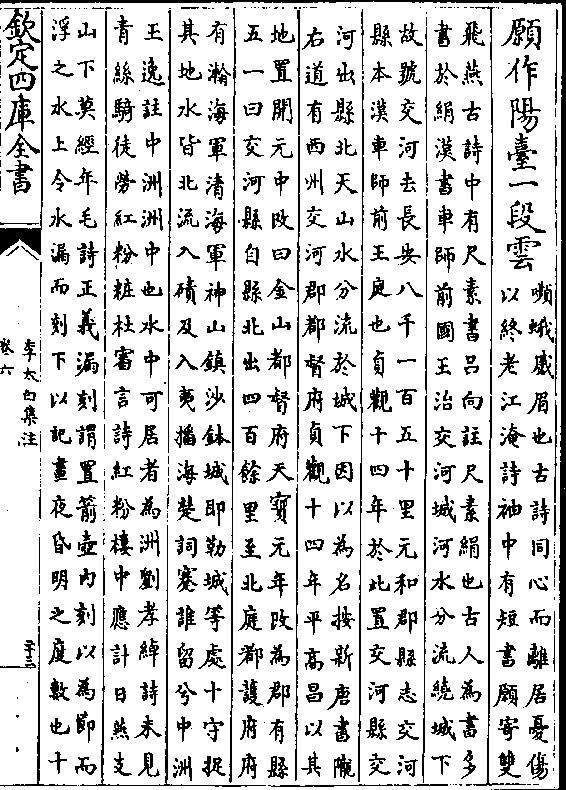 願作陽臺一段雲
嚬蛾蹙眉也古詩同心而離居憂傷
以終老江淹詩袖中有短書願寄雙
飛燕古詩中有尺素書吕向註尺素絹也古人為書多
書於絹漢書車師前國王治交河城河水分流繞城下
故號交河去長安八千一百五十里元和郡縣志交河
縣本漢車師前王庭也貞觀十四年於此置交河縣交
河出縣北天山水分流於城下因以為名按新唐書隴
右道有西州交河郡都督府貞觀十四年平高昌以其
地置開元中改曰金山都督府天寳元年改為郡有縣
五一曰交河縣自縣北出四百餘里至北庭都護府府
有瀚海軍清海軍神山鎮沙鉢城即勒城等處十守捉
其地水皆北流入磧及入夷播海楚詞蹇誰留兮中洲
王逸註中洲洲中也水中可居者為洲劉孝綽詩未見
青絲騎徒勞紅粉粧杜審言詩紅粉樓中應計日燕支
山下莫經年毛詩正義漏刻謂置箭壺内刻以為節而
浮之水上令水漏而刻下以記晝夜昏明之度數也十
欽定四庫全書
李太白集注
卷六
二十三